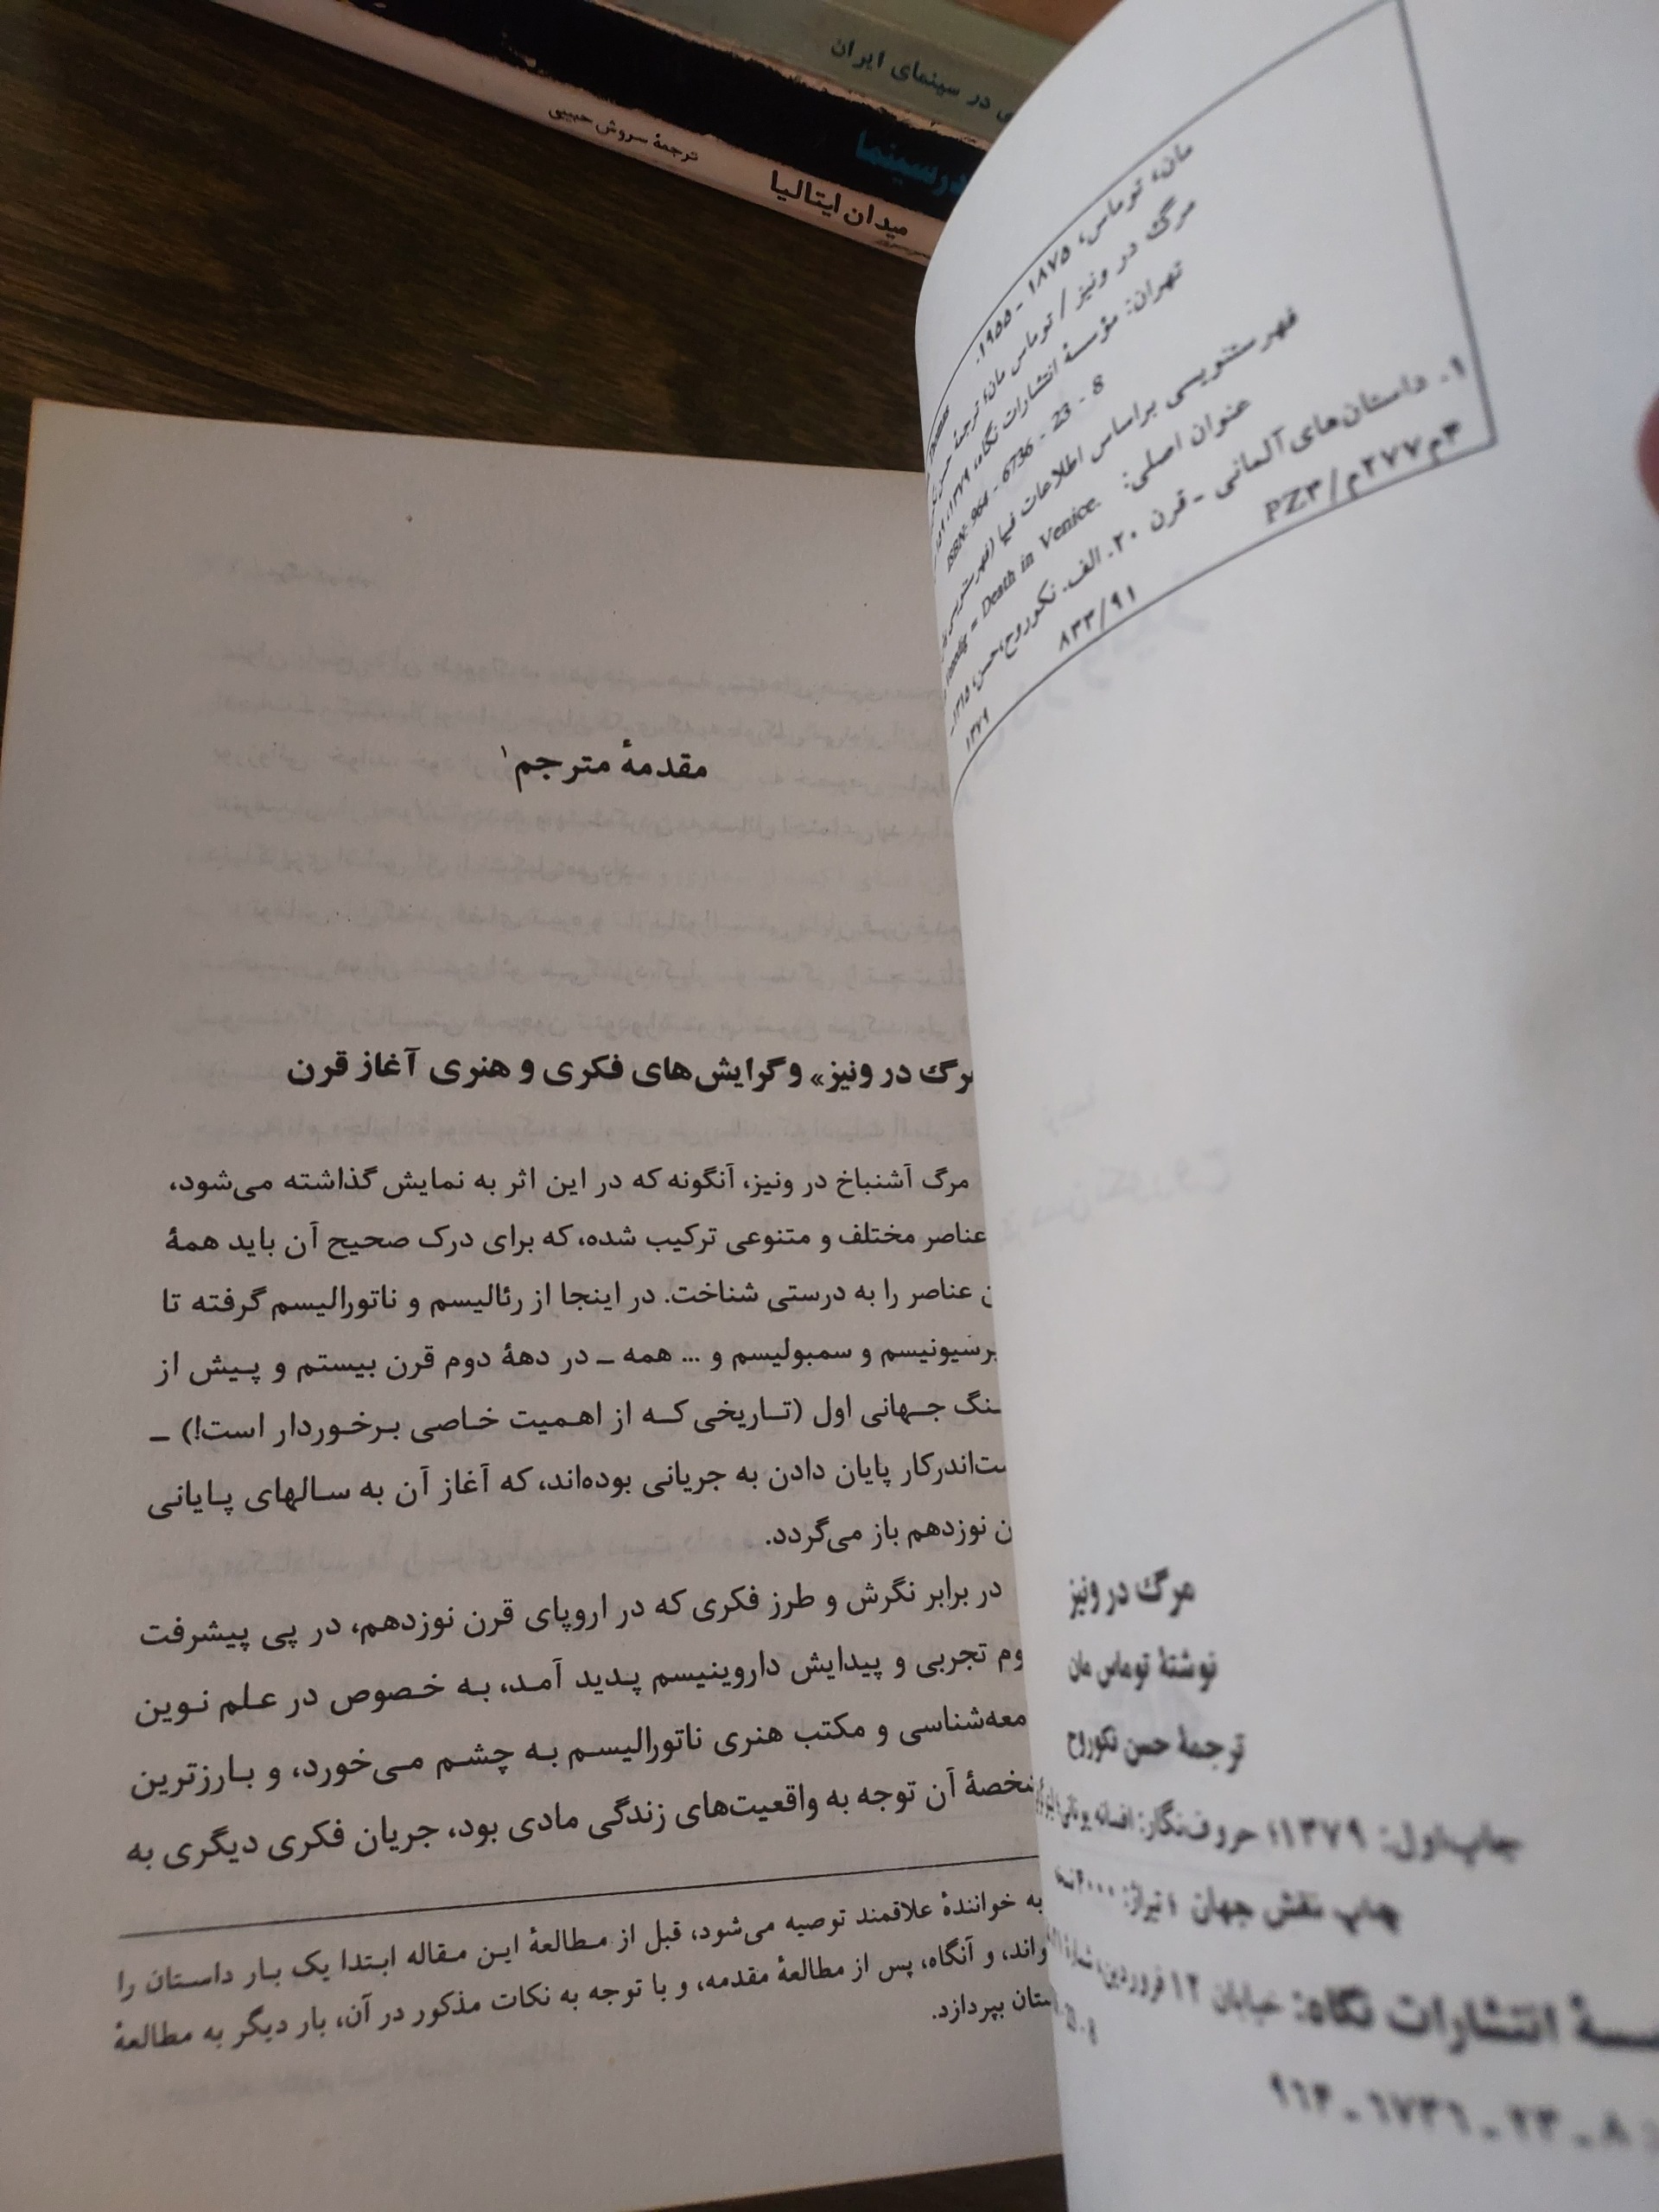 در سینمای ایران
درسینما
میدان ایتالیا
ترجمهٔ سروش حبیبی
مان، توماس، ۱۸۷۵ - ۱۹۵۵.
مرگ در ونیز / توماس مان؛ ترجمهٔ حسن
تهران: مؤسسهٔ انتشارات نگاه، ۱۳۷۹.
ISBN: 964 - 6736 - 23 - 8
فهرستنویسی براساس اطلاعات فیپا
عنوان اصلی: = Death in Venice.
۱. داستان‌های آلمانی - قرن ۲۰. الف. نکوروح، حسن، ۱۳۱۵
۸۳۳/۹۱ PZ۳/م۲۷۷م۴
۱۳۷۹
مرگ در ونیز
نوشتهٔ توماس مان
ترجمهٔ حسن نکوروح
چاپ اول: ۱۳۷۹؛ حروف‌نگار: افسانه یونانی؛
چاپ نقش جهان؛ تیراژ:
انتشارات نگاه: خیابان ۱۲ فروردین، شمارهٔ
۹۶۴ - ۶۷۳۶ - ۲۳ - ۸
مقدمهٔ مترجم۱
در ونیز» و گرایش‌های فکری و هنری آغاز قرن
مرگ آشنباخ در ونیز، آنگونه که در این اثر به نمایش گذاشته می‌شود،
عناصر مختلف و متنوعی ترکیب شده، که برای درک صحیح آن باید همهٔ
عناصر را به درستی شناخت. در اینجا از رئالیسم و ناتورالیسم گرفته تا
و سمبولیسم و ... همه – در دههٔ دوم قرن بیستم و پیش از
جهانی اول (تاریخی که از اهمیت خاصی برخوردار است!) –
پایان دادن به جریانی بوده‌اند، که آغاز آن به سالهای پایانی
نوزدهم باز می‌گردد.
در برابر نگرش و طرز فکری که در اروپای قرن نوزدهم، در پی پیشرفت
تجربی و پیدایش داروینیسم پدید آمد، به خصوص در علم نوین
و مکتب هنری ناتورالیسم به چشم می‌خورد، و بارزترین
آن توجه به واقعیت‌های زندگی مادی بود، جریان فکری دیگری به
به خوانندهٔ علاقمند توصیه می‌شود، قبل از مطالعهٔ این مقاله ابتدا یک بار داستان را
و آنگاه، پس از مطالعهٔ مقدمه، و با توجه به نکات مذکور در آن، بار دیگر به مطالعهٔ
بپردازد.